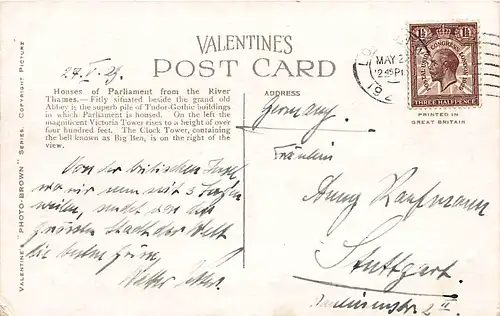 VALENTINE'S
POST CARD
27.V.29.
Houses of Parliament from the River
Thames.—Fitly situated beside the grand old
Abbey is the superb pile of Tudor-Gothic buildings
in which Parliament is housed. On the left the
magnificent Victoria Tower rises to a height of over
four hundred feet. The Clock Tower, containing
the bell known as Big Ben, is on the right of the
view.
Von der britischen Insel,
wo wir nun seit 3 Tagen
weilen, sendet von der
grössten Stadt der Welt
die besten Grüsse
Walter
VALENTINE'S "PHOTO-BROWN" SERIES. COPYRIGHT PICTURE
ADDRESS
Germany.
Fräulein
Anny Kaufmann
Stuttgart.
LO
MAY 2
2.45 P
192
1½ 1½
POSTAL UNION CONGRESS LONDON 1929
THREE HALFPENCE
PRINTED IN
GREAT BRITAIN